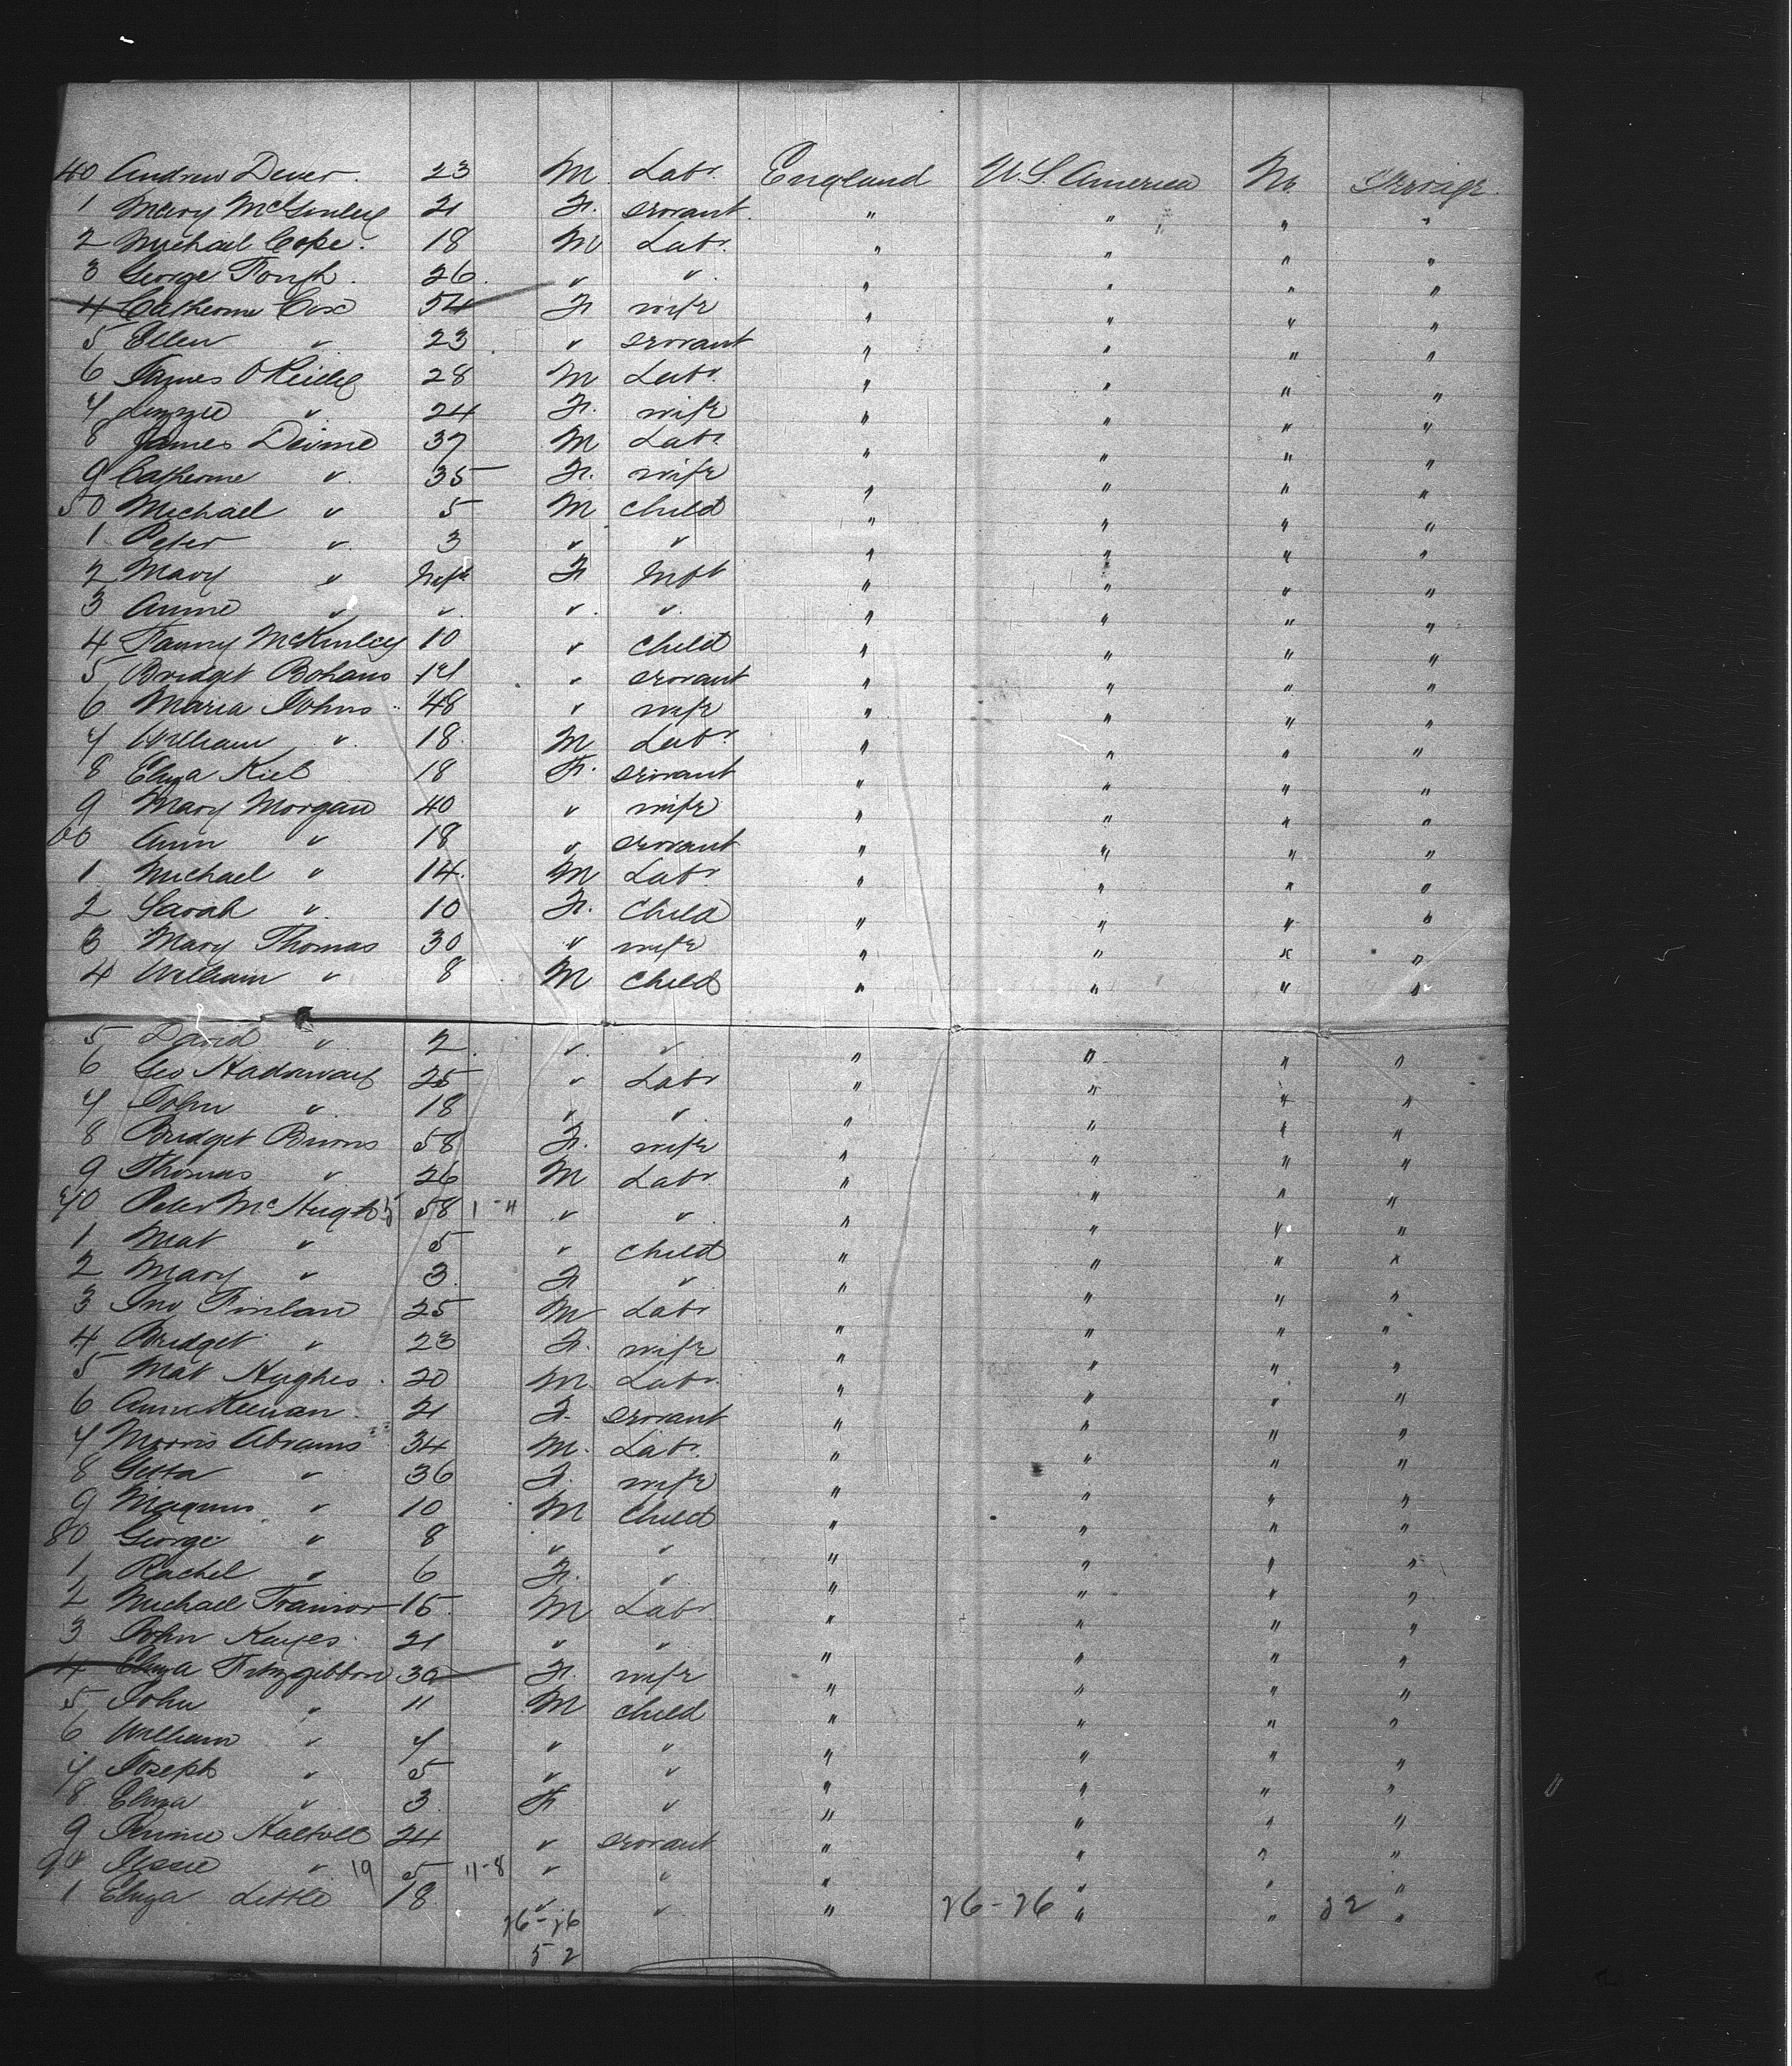 40 Andrew Dever. 23 M Labr. England U.S. America No Steerage.
1 Mary McGinley 21 F. servant. " " " "
2 Michael Cope. 18 M Labr. " " " "
3 George 26 " " " " " "
4 Catherine Cox 54 F wife " " " "
5 Ellen " 23 " servant " " " "
6 James O Reidy 28 M Labr. " " " "
7 Lizzie " 24 F. wife " " " "
8 James Devine 37 M Labr. " " " "
9 Catherine " 35 F. wife " " " "
50 Michael " 5 M child " " " "
1 Peter " 3 " " " " " "
2 Mary " Inft F Inft " " " "
3 Annie " " " " " " " "
4 Fanny McKinley 10 " child " " " "
5 Bridget Bohans " servant " " " "
6 Maria Johns 48 " wife " " " "
7 William " 18 M Labr. " " " "
8 Eliza Kiel 18 F. servant " " " "
9 Mary Morgan 40 " wife " " " "
60 Ann " 18 " servant " " " "
1 Michael " 14. M Labr " " " "
2 Sarah " 10 F. Child " " " "
3 Mary Thomas 30 " wife " " " "
4 William " 8 M Child " " " "
5 David " 2 " " " " " "
6 Geo Hadaway 25 " Labr " " " "
7 John " 18 " " " " " "
8 Bridget Burns 58 F. wife " " " "
9 Thomas " 26 M Labr " " " "
70 Peter McHugh 5 58 1-11 " " " " " "
1 Mat " 5 " child " " " "
2 Mary " 3 F " " " " "
3 Jno Finlan 25 M Labr " " " "
4 Bridget " 23 F. wife " " " "
5 Mat Hughes 20 M Labr. " " " "
6 Ann Keenan 21 F. servant " " " "
7 Morris Abrams 34 M. Labr. " " " "
8 Getta " 36 F. wife " " " "
9 Magnus " 10 M Child " " " "
80 George " 8 " " " " " "
1 Rachel " 6 F. " " " " "
2 Michael Trainor 15 M Labr " " " "
3 John Kayes 21 " " " " " "
4 Eliza Fitzgibbon 30 F. wife " " " "
5 John " 11 M child " " " "
6 William " 7 " " " " " "
7 Joseph " 5 " " " " " "
8 Eliza " 3 F " " " " "
9 24 " servant " " " "
90 Jessie " 19 5 11-8 " " " " " "
1 Eliza Little 18 " " " 26-26 " " 52 "
26-26
52